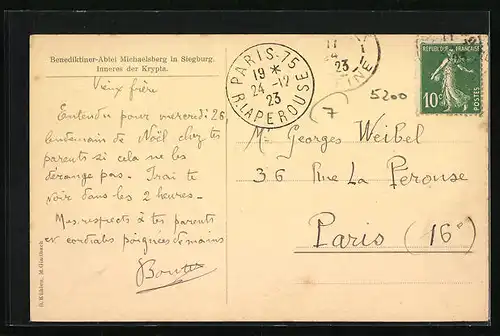 Benediktiner-Abtei Michaelsberg in Siegburg.
Inneres der Krypta.
Vieux frère
Entendu pour mercredi 26
lendemain de Noël chez tes
parents si cela ne les
dérange pas. Irai te
voir dans les 2 heures.
Mes respects à tes parents
et cordiales poignées de mains
PARIS-75
19 *
24-12
23
R. LA PEROUSE
23
RÉPUBLIQUE FRANÇAISE
POSTES
10c
5200
7
M. Georges Weibel
36 Rue La Perouse
Paris (16e)
B. Kühlen, M.Gladbach